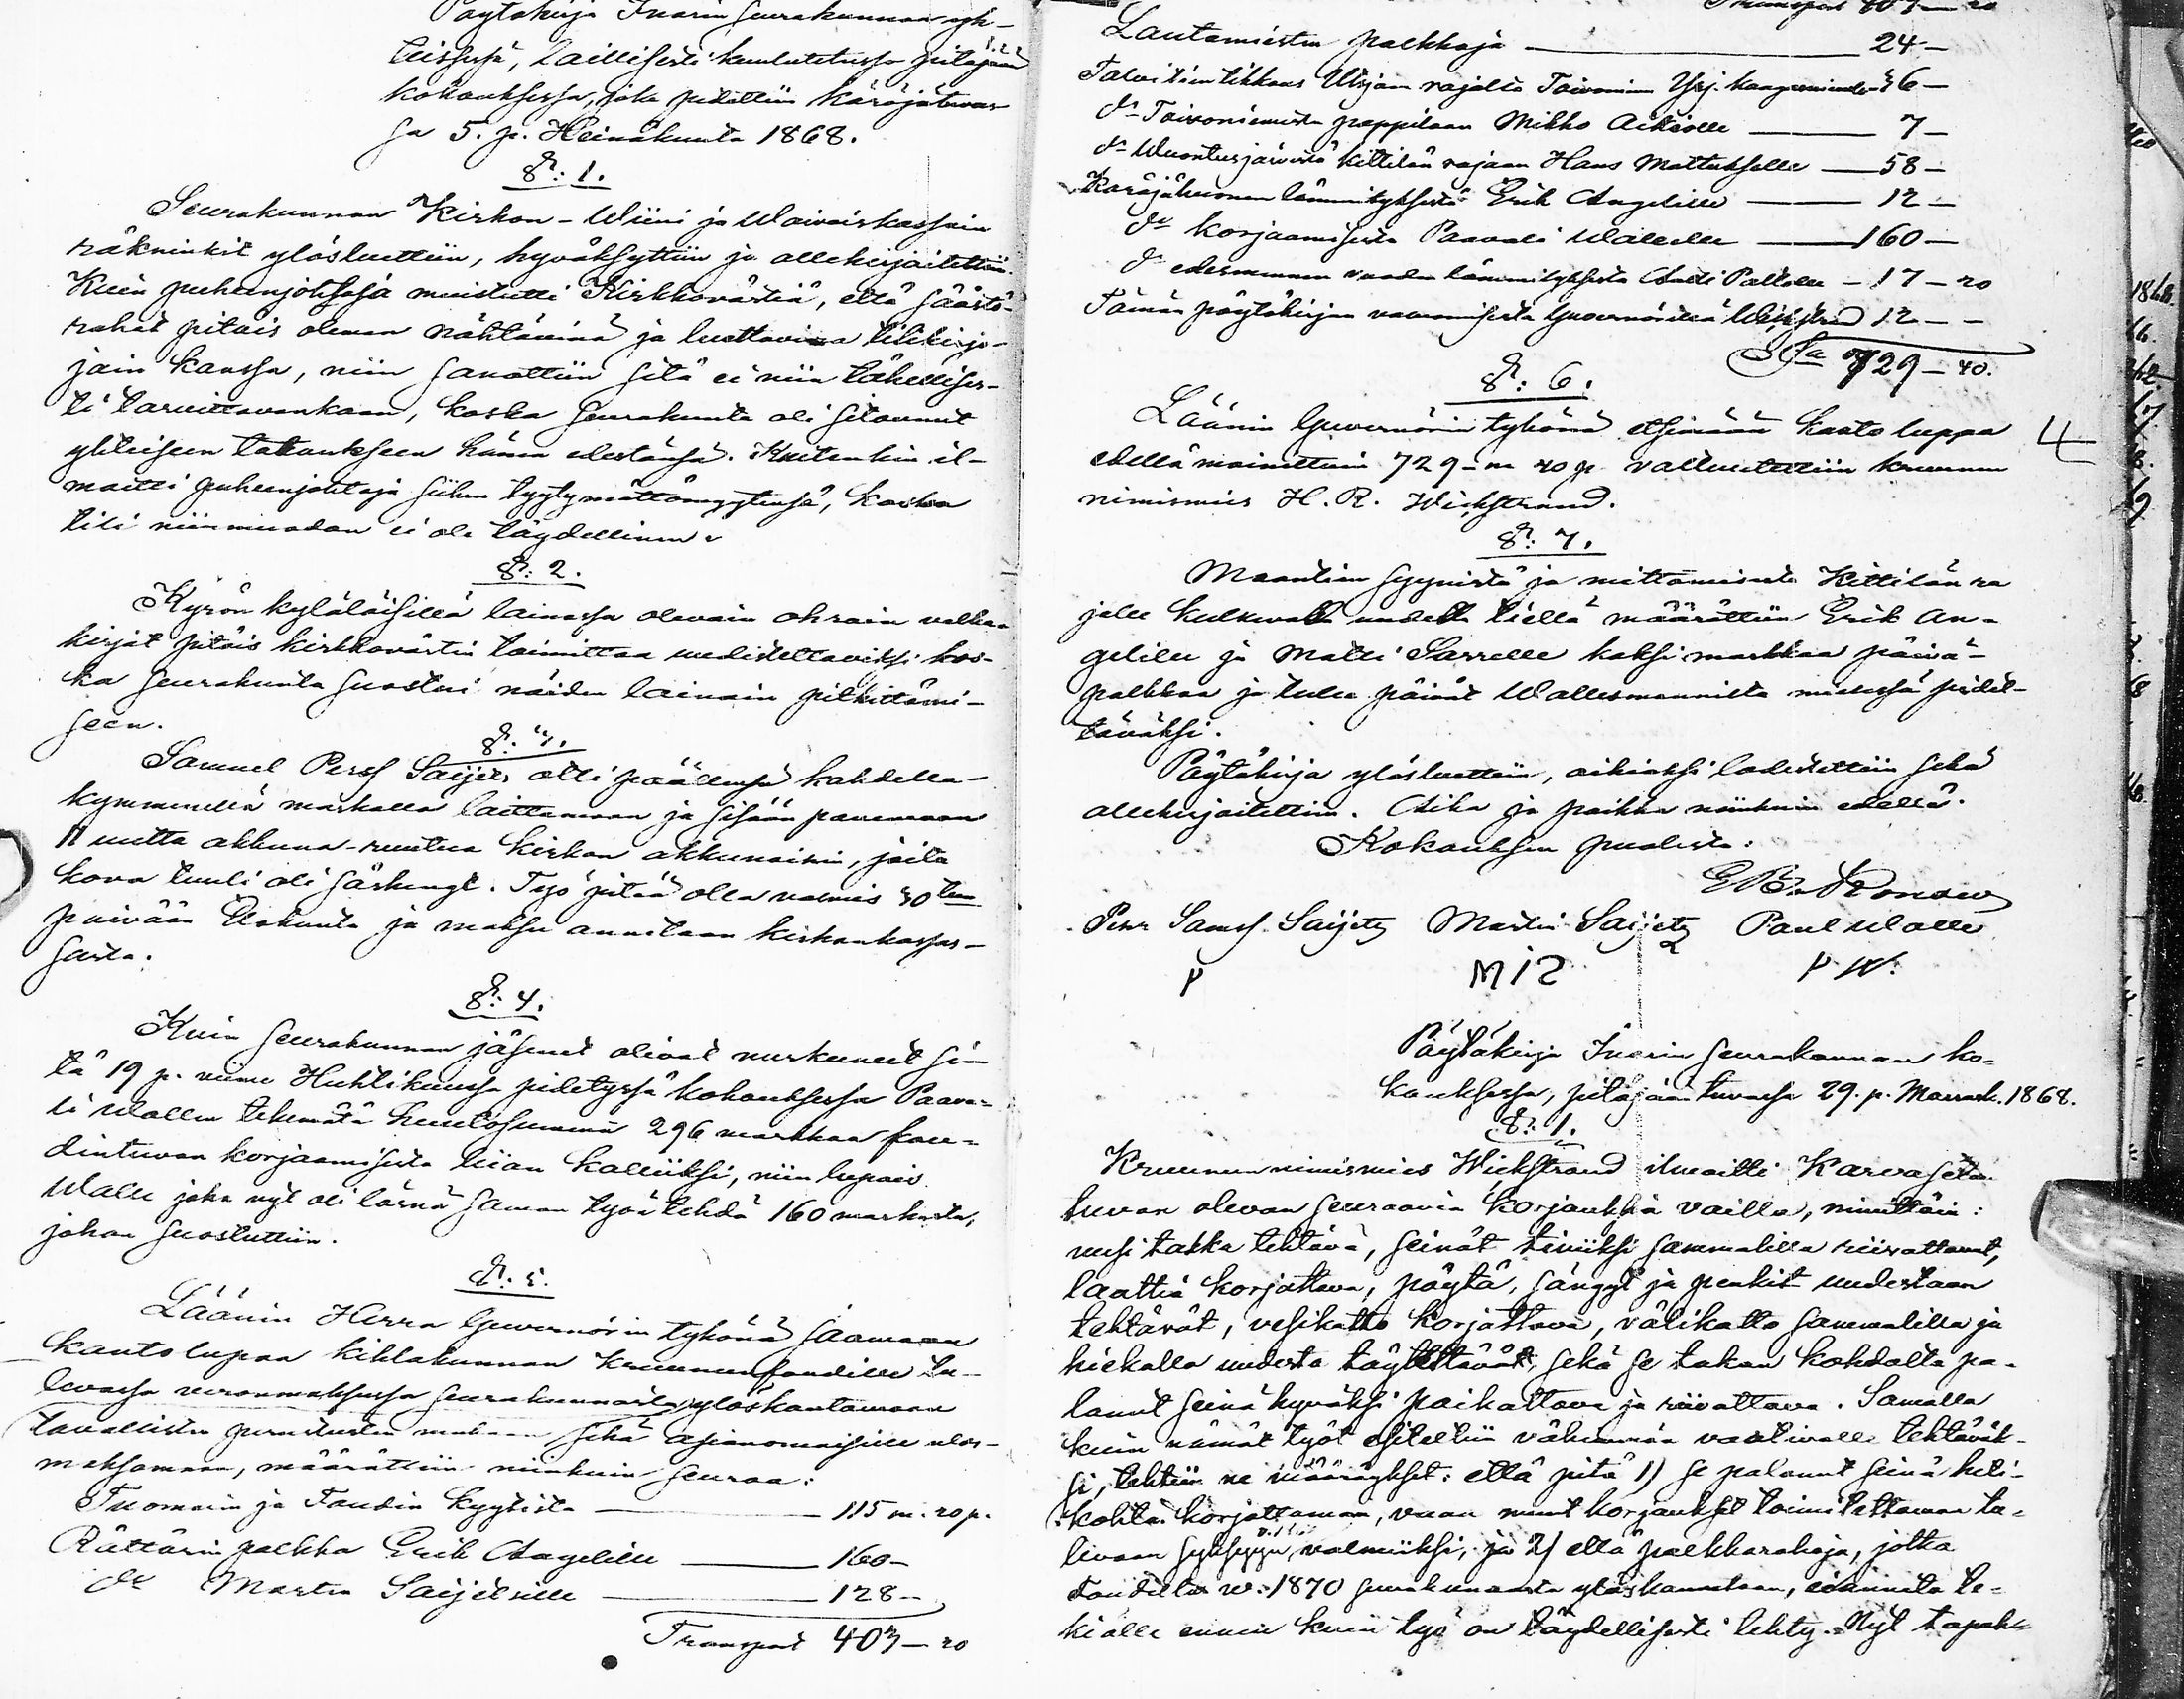 Pöytäkirja Inarin seurakunnan yh-
teisessä, laillisesti kuulutetussa pitäjään
kokouksessa, joka pidettiin käräjätuvas-
sa 5. p. Heinäkuuta 1868.
§: 1.
Seurakunnan Kirkon- Wiini ja Waivaiskassain
räkninkit ylösluettiin, hyväksyttiin ja allekirjoitettiin.
Kuin puheenjohtaja muistutti Kirkkovärtiä, että säästö-
rahat pitäis oleman nähtävinä ja luettavina tilikirjo-
jain kanssa, niin sanottiin sitä ei niin täkellises-
ti tarvittavankaan, koska seurakunta oli sitounut
yhteiseen takaukseen hänen edestänsä. Kuitenkin il-
moitti puheenjohtaja siihen tyytymättömyytensä, koska
tili niinmuodon ei ole täydellinen.
§: 2.
Kyrön kyläläisillä lainassa olevain ohrain velka-
kirjat pitäis kirkkovärtin toimittaa uudistettaviksi kos-
ka seurakunta suostui näiden lainain pitkittämi-
seen.
§: 3.
Samuel Perss Saijets otti päällensä kahdella-
kymmenellä markalla laittamaan ja sisään panemaan
11 uutta akkuna-ruutua kirkon akkunoihin, joita
kova tuuli oli särkenyt. Työ pitää olla valmis 30 ten
päivään Elokuuta ja maksu annetaan kirkonkassas-
sasta.
§: 4.
Kuin seurakunnan jäsenet olivat nurkuneet si-
tä 19 p. viime Huhtikuussa pidetyssä kokouksessa Paava-
li Wallen tekemätä huutosummaa 296 markkaa fou-
dintuvan korjaamisesta liian kalliiksi, niin lupais
Walle joka nyt oli läsnä saman työn tehdä 160 markasta,
johon suostuttiin.
§: 5.
Läänin Herra Guvernörin tykönä saamaan
kantolupaa kihlakunnan kruununfoudille tu-
levassa veronmaksussa seurakunnasta ylöskantamaan
tavallisten perustusten mukaan sekä asianomaisille ulos-
maksamaan, määrättiin niinkuin seuraa:
Tuomarin ja Foudin kyytistä — 115 m. 20 p.
Rättärin palkka Erik Angelille — 160 —
do Martin Saijetsille — 128 —
Transport 403 — 20
Transport 403 — 20
Lautamiesten palkkaja — 24 —
Talvitien tikkaus Utsjoen rajalta Toivoniemi Yrj. 36 —
do Toivoniemestä pappilaan Mikko Aikiolle — 7 —
do Muontusjärvestä kittilän rajaan Hans Mattukselle — 58 —
Käräjähuonen lämmityksestä Erik Angelille — 12 —
do korjaamisesta Paavali Wallelle — 160 —
do edesmennen vuoden lämmityksestä Antti Paltolle — 17 — 20
Tämän pöytäkirjan vaaromisesta guvernöriltä Wickstrand 12 — —
S:a 729 — 40.
§: 6.
Läänin Guvernörin tykönä etsimään kanto luppa
edellä mainittuin 729 — m 40 p. valtuutettiin kruunun
nimismies H. R. Wickstrand.
4
§: 7.
Maantien syynistä ja mittamisesta Kittilän ra
jalle kulkevalla uudella tiellä määrättiin Erik An-
gelille ja Matti Sarrelle kaksi markkaa päivä-
palkkaa ja tulee päivät Wallesmannilta muistissä pidet-
täväksi.
Pöytäkirja ylösluettiin, oikiaksi todistettiin sekä
allekirjoitettiin. Aika ja paikka niinkuin edellä.
Kokouksen puolesta:
Pehr Samss. Saijets Martin Saijets Paul Walle
P M I S P W.
Pöytäkirja Inarin seurakunnan ko-
kouksessa, pitäjään tuvassa 29. p. Marrask. 1868.
§: 1.
Kruunun nimismies Wickstrand ilmoitti Karvaselän
tuvan olevan seuraavia korjauksia vailla, nimittäin:
uusi takka tehtävä, seinät tiviiksi sammalilla riivattavat,
laattia korjattava, pöytä, sängyt ja penkit uudestaan
tehtävät, vesikatto korjattava, välikatto sammalilla ja
hiekalla uudesta täytettävät, sekä se takan kohdalta pa-
lanut seinä hyväksi paikattava ja riivattava. Samalla
kuin nämät työt esiteltiin vähemmän vaativalle tehtäväk-
si, tehtiin ne määräykset: että pitä 1) se palanut seinä heti-
kohta korjattaman, vaan muut korjaukset toimitettaman tu-
levaan syksyyn valmiiksi, ja 2) että palkkarahoja, jotka
Foudilta w. 1870 seurakunnasta ylöskannetaan, ei anneta te-
kiälle ennen kuin työ on täydellisesti tehty. Nyt tapah-